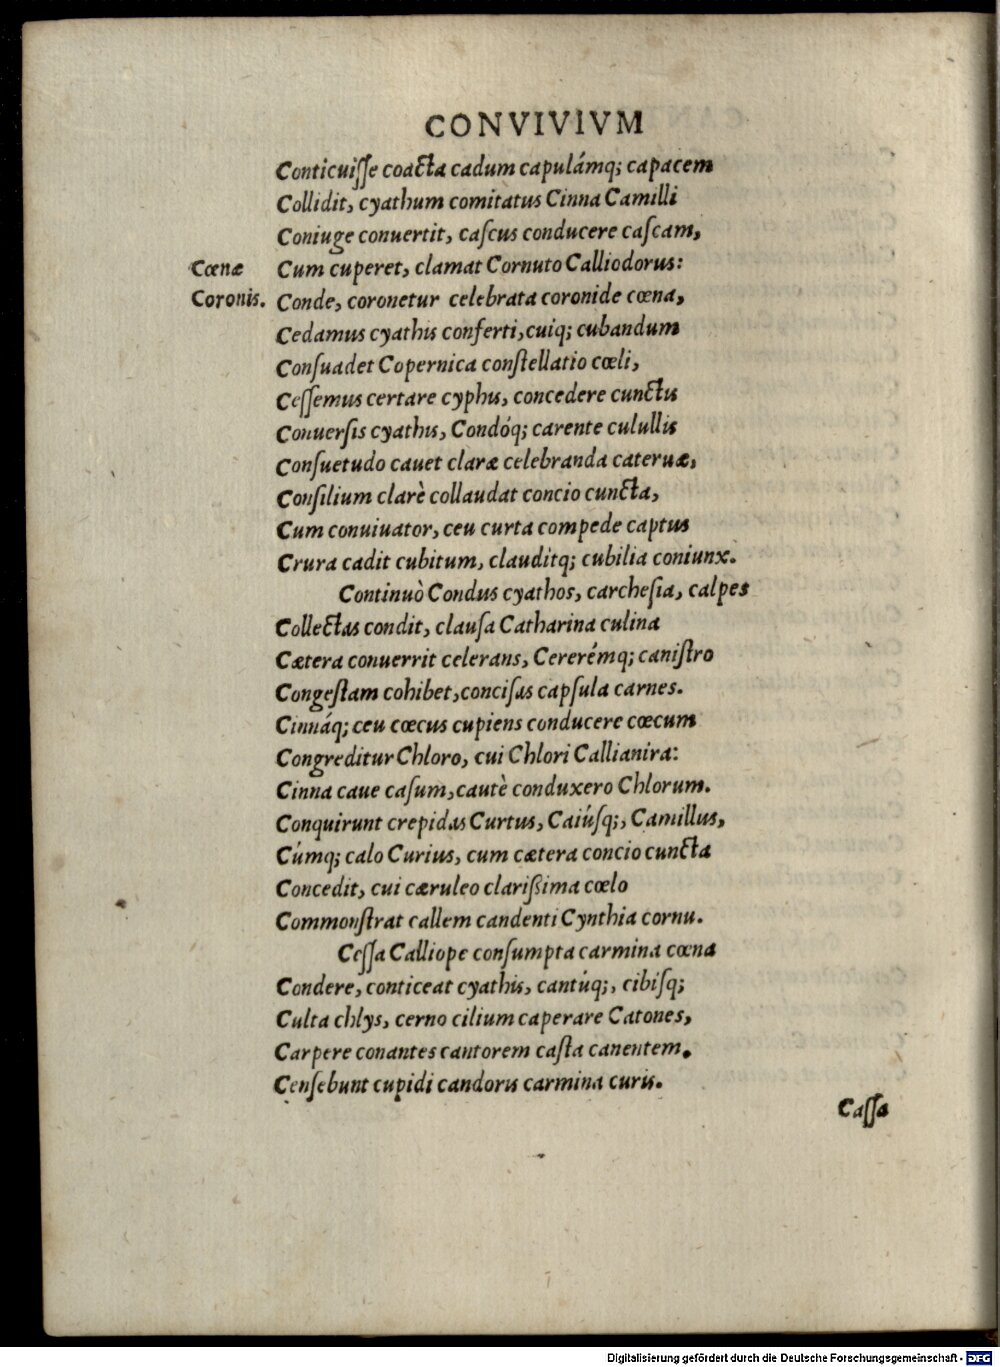 CONVIVIVM
Conticuiſſe coacta cadum capulámq; capacem
Collidit, cyathum comitatus Cinna Camilli
Coniuge conuertit, caſcus conducere caſcam,
Cœnæ Cum cuperet, clamat Cornuto Calliodorus:
Coronis. Conde, coronetur celebrata coronide cœna,
Cedamus cyathis conferti, cuiq; cubandum
Conſuadet Copernica conſtellatio cœli,
Ceſſemus certare cyphis, concedere cunctis
Conuerſis cyathis, Condóq; carente culullis
Conſuetudo cauet claræ celebranda cateruæ,
Conſilium clarè collaudat concio cuncta,
Cum conuiuator, ceu curta compede captus
Crura cadit cubitum, clauditq; cubilia coniunx.
Continuò Condus cyathos, carcheſia, calpes
Collectas condit, clauſa Catharina culina
Cætera conuerrit celerans, Cererémq; caniſtro
Congeſtam cohibet, conciſas capſula carnes.
Cinnáq; ceu cœcus cupiens conducere cœcum
Congreditur Chloro, cui Chlori Callianira:
Cinna caue caſum, cautè conduxero Chlorum.
Conquirunt crepidas Curtus, Caiúſq;, Camillus,
Cúmq; calo Curius, cum cætera concio cuncta
Concedit, cui cæruleo clarißima cœlo
Commonſtrat callem candenti Cynthia cornu.
Ceſſa Calliope conſumpta carmina cœna
Condere, conticeat cyathis, cantúq;, cibiſq;
Culta chlys, cerno cilium caperare Catones,
Carpere conantes cantorem caſta canentem.
Cenſebunt cupidi candoris carmina curis.
Caſſa
Digitalisierung gefördert durch die Deutsche Forschungsgemeinschaft - DFG